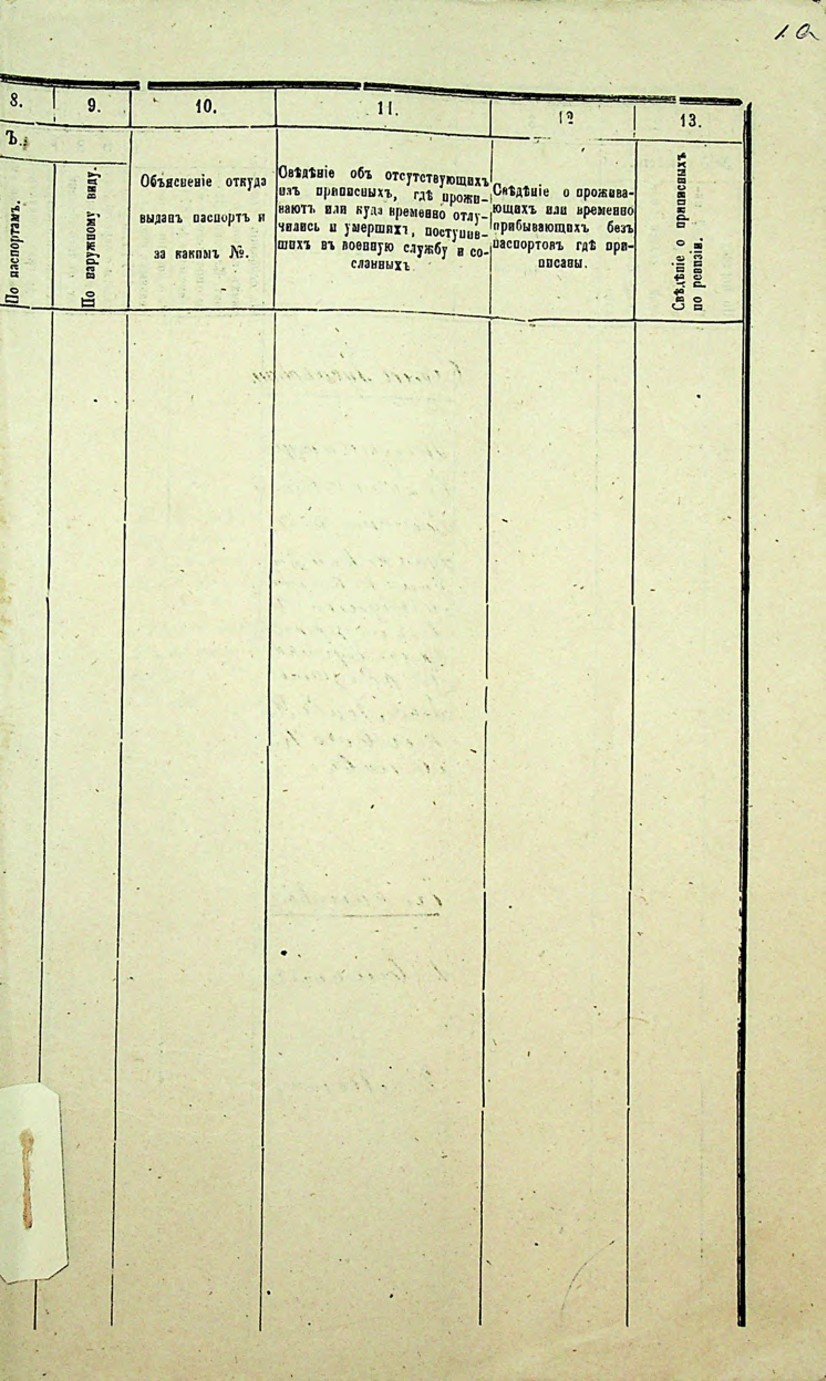 10
8.
9.
10.
11.
12
13.
Ъ.
По паспортамъ.
По наружному виду.
Объясненіе откуда
выданъ паспортъ и
за какимъ №.
Свѣдѣніе объ отсутствующихъ
изъ приписныхъ, гдѣ прожи-
ваютъ или куда временно отлу-
чились и умершихъ, поступив-
шихъ въ военную службу и со-
сланныхъ
Свѣдѣніе о прожива-
ющихъ или временно
прибывающихъ безъ
паспортовъ гдѣ при-
писаны.
Свѣдѣніе о приписныхъ
по ревизіи.